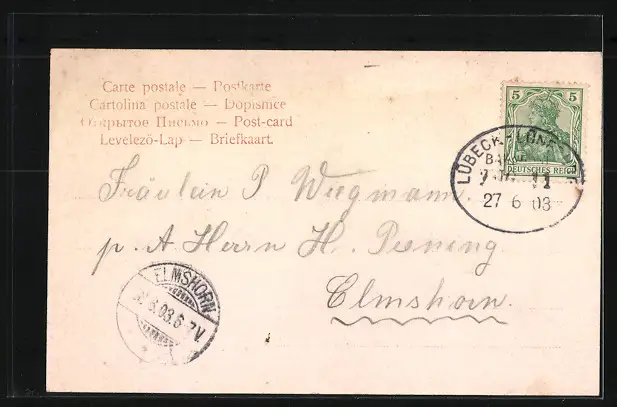 Carte postale — Postkarte
Cartolina postale — Dopisnice
Открытое Письмо — Post-card
Levelező-Lap — Briefkaart.
5 5
DEUTSCHES REICH
LÜBECK
27 6 03
Fräulein P Wiegmann.
p. A. Herrn H. Pening.
Elmshorn.
ELMSHORN
6.03.6-7V.